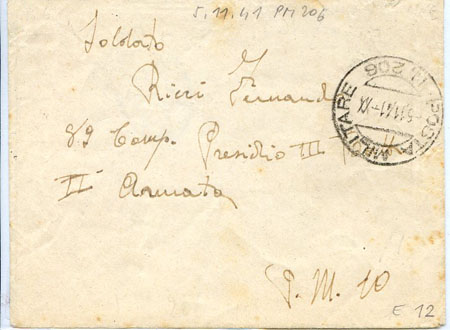 5.11.41 PM 206
Soldato
Ricci Fernand
89 Comp. Presidio III
IIª Armata
P. M. 10
E 12
POSTA MILITARE
N. 206
5.11.41-XX